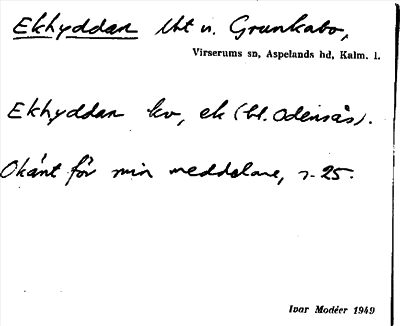 Ekhyddan lht u. Grunkabo,
Virserums sn, Aspelands hd, Kalm. l.
Ekhyddan kv, ek (bl. Odensås).
Okänt för min meddelare, s. 25.
Ivar Modéer 1949